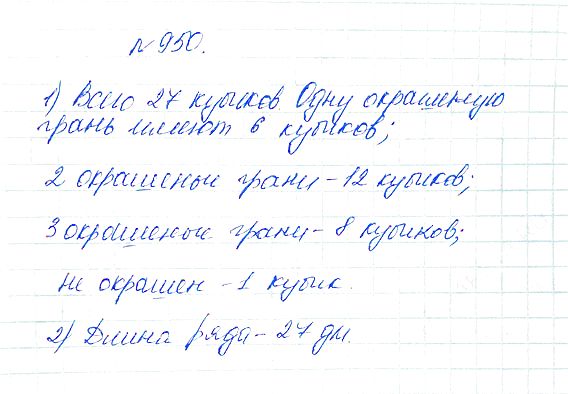 № 950.
1) Всего 27 кубиков Одну окрашеную
грань имеют 6 кубиков;
2 окрашеные грани - 12 кубиков;
3 окрашеные грани - 8 кубиков;
не окрашен - 1 кубик.
2) Длина ряда - 27 дм.